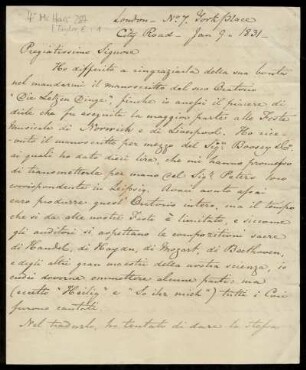 London - No. 7. York place
City Road - Jan 9 - 1831.
Pregiatissimo Signore
Ho differito a ringraziarla della sua bontà
nel mandarmi il manuscritto del suo Oratorio
"Die Letzen Dinge", finchè io avessi il piacere di
dirle che fu eseguita la maggior parte alle Feste
Musicale di Norwich e di Liverpool. Ho rice-
vuto il manuscritto per mezzo del Sigr Boosey & Co.
ai quali ho dato dieci lire, che mi hanno promesso
di transmetterle per mano del Sigr Petris loro
corrispondente in Leipsig. Avrei avuto assai
caro produrre quest' Oratorio intero, ma il tempo
che si dà alle nostre Feste è limitato, e siccome
gli auditori si aspettano le composizioni sacre
di Handel, di Haydn, di Mozart, di Beethoven,
e degli altri gran maestri della nostra scienza, io
fui dovuto ommettere alcune parti; ma
(eccetto "Heilig" e "So ihr mich") tutti i Cori
furono cantati
Nel tradurlo, ho tentato di dare la stessa